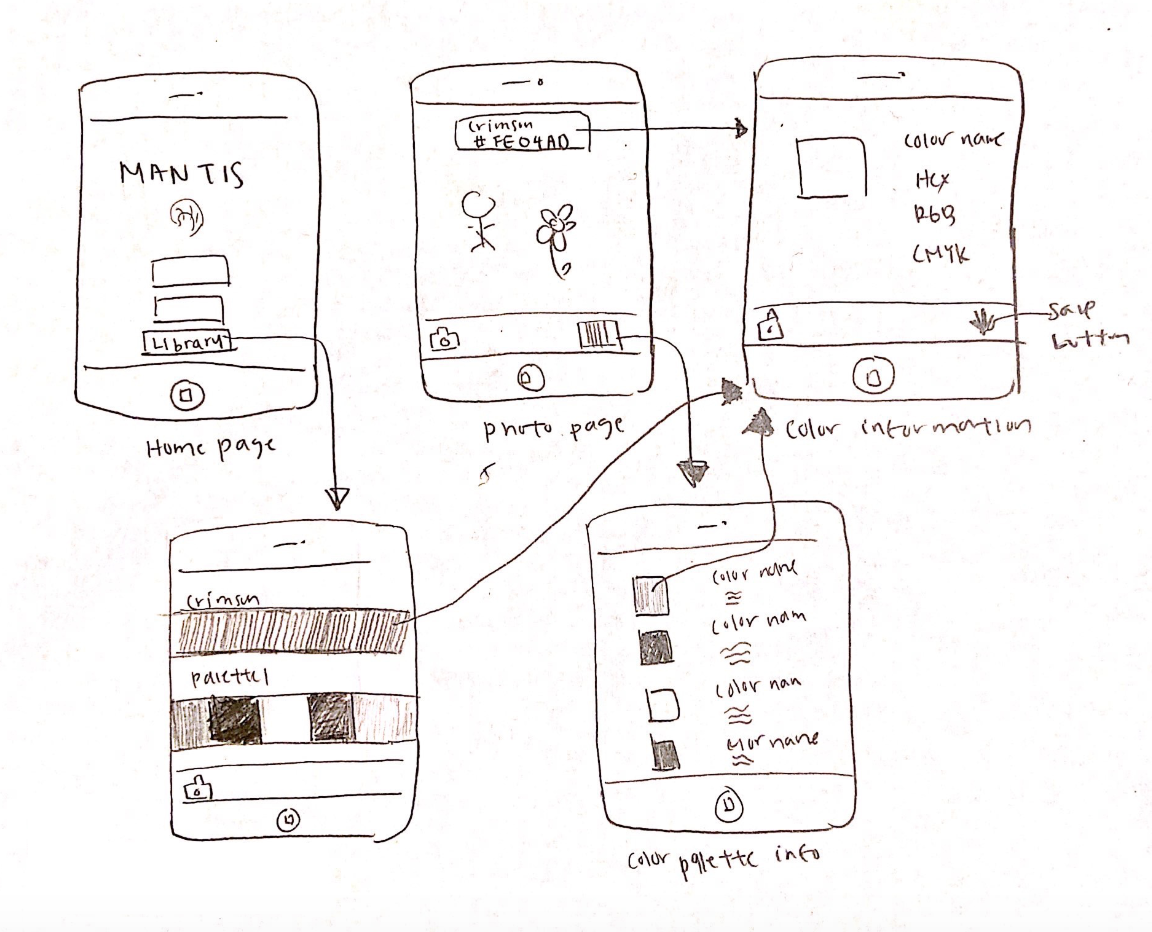 MANTIS
Library
Home page
Crimson
# FE04AD
photo page
Color name
Hex
RGB
CMYK
Save
button
Color information
Crimson
palette1
Color name
Color nam
Color nan
Color name
Color palette info